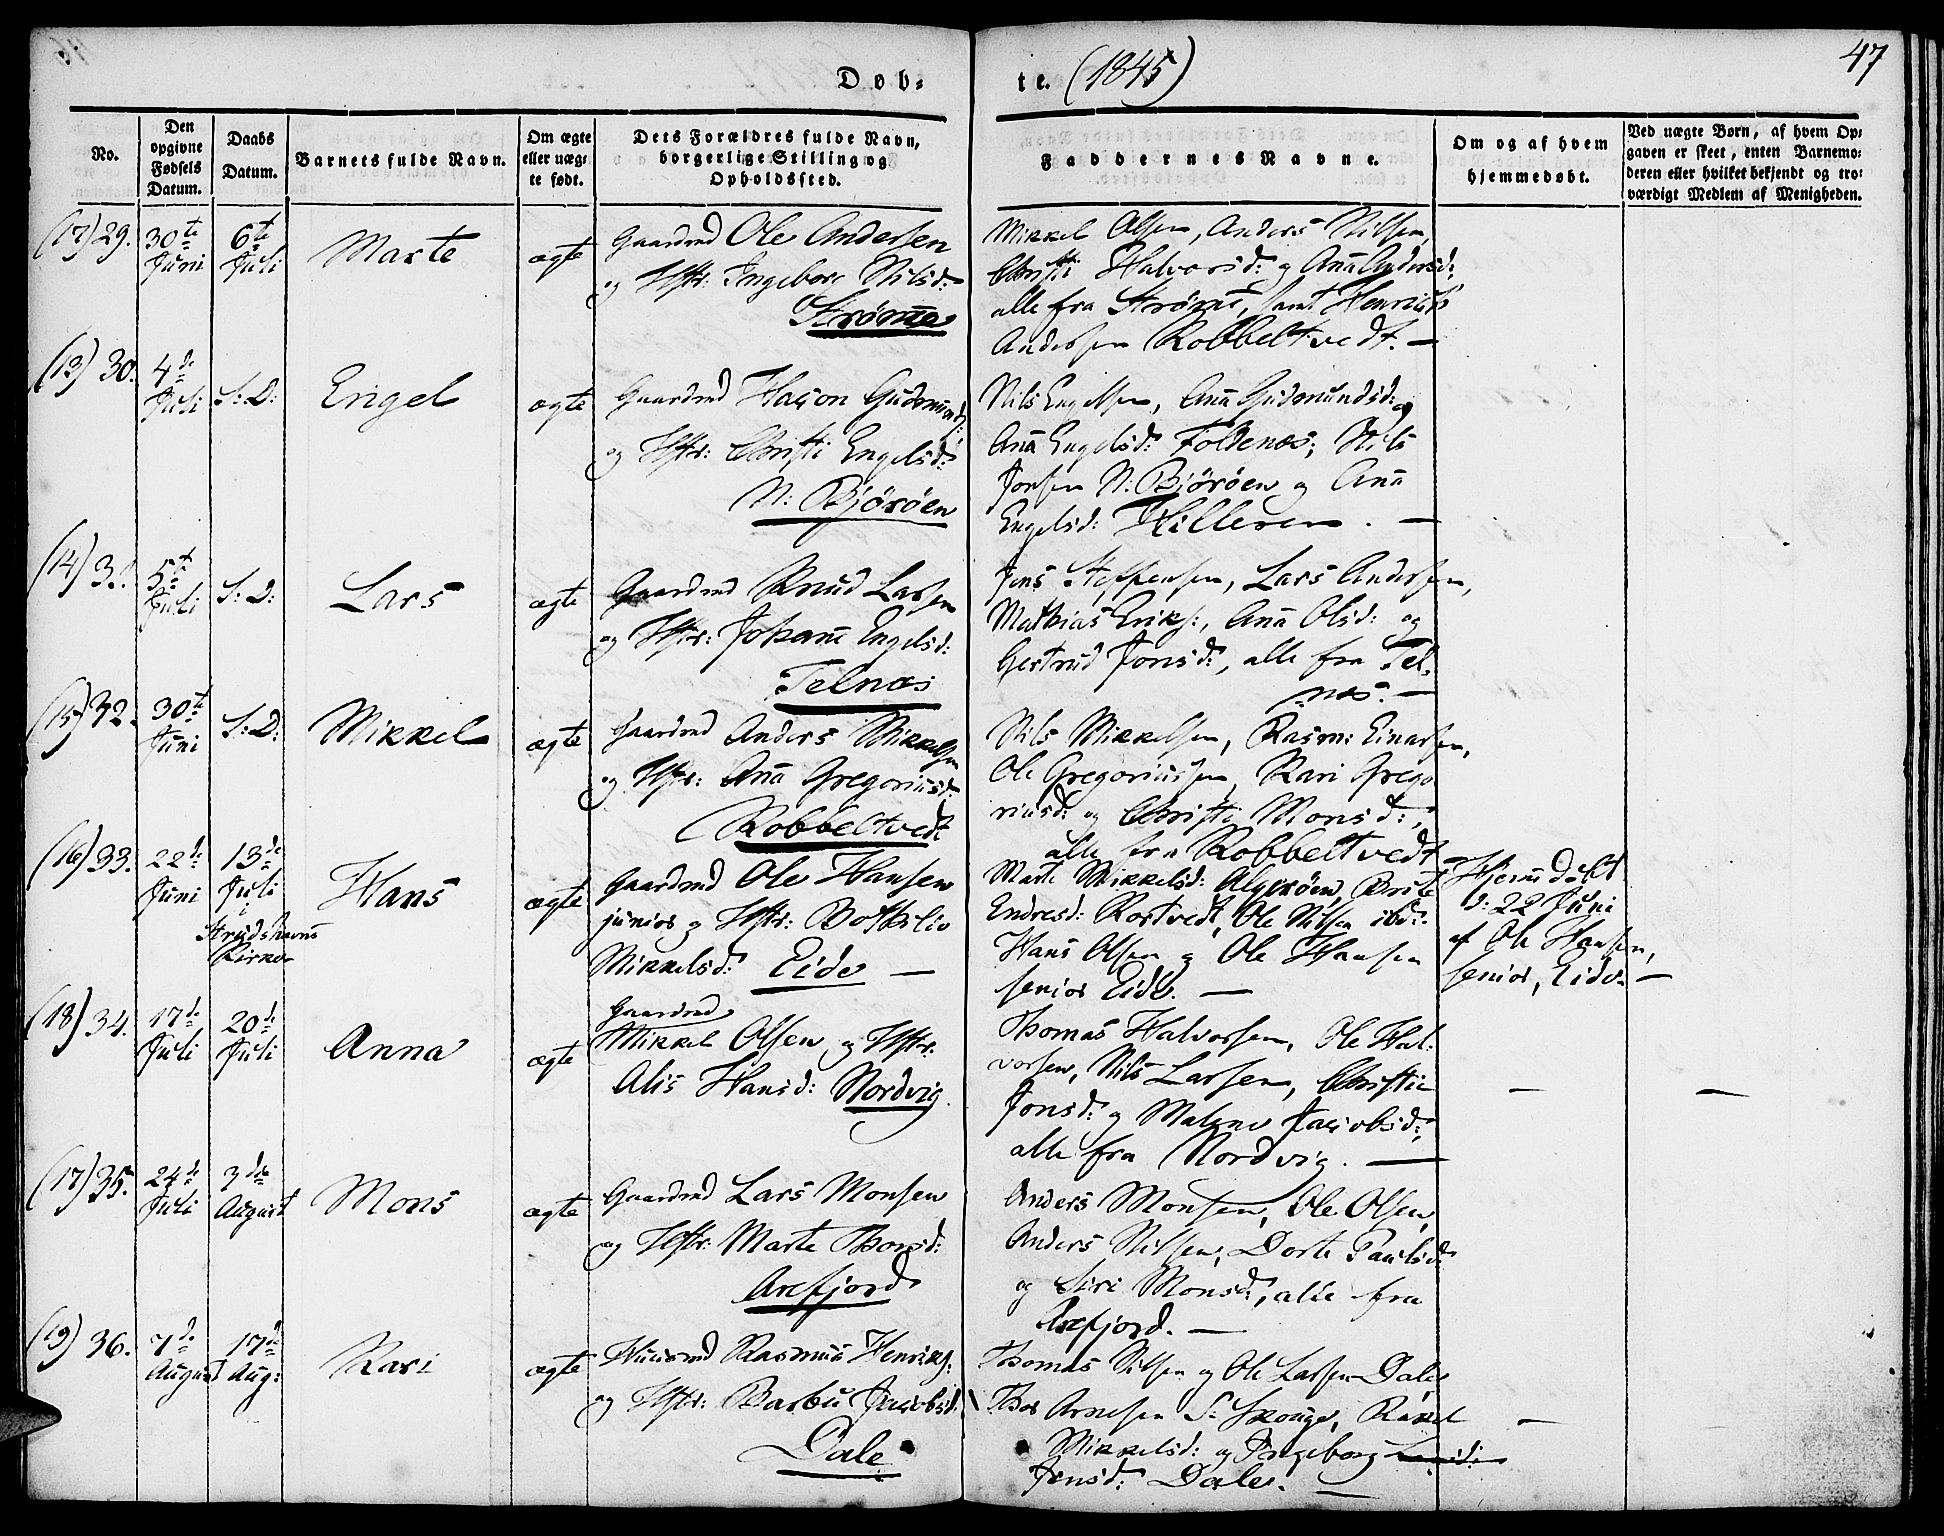 Døb-
te. (1845)
47
No.
Den
opgivne
Fødsels
Datum.
Daabs
Datum.
Barnets fulde Navn.
Om ægte
eller uæg-
te født.
Dets Forældres fulde Navn,
borgerlige Stilling og
Opholdssted.
Faddernes Navne.
Om og af hvem
hjemmedøbt.
Ved uægte Børn, af hvem Op-
gaven er skeet, enten Barnemo-
deren eller hvilket bekjendt og tro-
værdigt Medlem af Menigheden.
(17) 29.
30te
Juni
6te
Juli
Marte
ægte
Gaardmd Ole Andersen
og Hstr: Ingeborg Nilsd:
Strømme
Mikkel Olsen, Anders Nilsen,
Christi Halvorsd: og Anna Andersd:
alle fra Strømme, samt Henrich
Andersen Robbeltvedt. —
(13) 30.
4de
Juli
S: D:
Engel
ægte
Gaardmd Hacon Gudmunds:
og Hstr: Christi Engelsd:
N: Bjørøen
Nils Engelsen, Anna Gudmundsd: og
Anna Engelsd: Foldenæs; Nils
Jonsen N: Bjørøen og Anna
Engelsd: Hilleren. —
(14) 31.
5te
Juli
S: D:
Lars
ægte
Gaardmd Knud Larsen
og Hstr: Johanne Engelsd:
Telnæs
Jens Steffensen, Lars Andersen,
Mathias Eriks:, Anna Olsd: og
Gertrud Jonsd:, alle fra Tel-
næs. —
(15) 32.
30te
Juni
S: D:
Mikkel
ægte
Gaardmd Anders Mikkelsen
og Hstr: Anna Gregoriusd:
Robbeltvedt
Nils Mikkelsen, Rasm: Einarsen,
Ole Gregoriussen, Kari Grego
riusd: og Christi Monsd:,
alle fra Robbeltvedt
(16) 33.
22de
Juni
13de
Juli
i
Strudshavns
Kirke
Hans
ægte
Gaardmd Ole Hansen
junior og Hstr: Bothilio
Mikkelsd: Eide —
Marte Mikkelsd: Algerøen, Brite
Endresd: Kortvedt, Ole Nilsen ibd:
Hans Olsen og Ole Hansen
senior Eide. —
Hjemdøbt
d: 22 Juni
af Ole Hansen,
senior, Eide. —
(18) 34.
17de
Juli
20de
Juli
Anna
ægte
Gaardmd
Mikkel Olsen og Hstr:
Alis Hansd: Nordvig.
Thomas Halvorsen, Ole Hal-
vorsen, Nils Larsen, Christie
Jonsd: og Malene Jacobsd:,
alle fra Nordvig. —
—
—
(17) 35.
24de
Juli
3die
August
Mons
ægte
Gaardmd Lars Monsen
og Hstr: Marte Thorsd:
Arefjord
Anders Monsen, Ole Olsen,
Anders Nilsen, Dorte Paulsd:
og Siri Monsd:, alle fra
Arefjord. —
(19) 36.
7de
August
17de
Aug:
Kari
ægte
Huusmd Rasmus Henriks:
og Hstr: Barbu Jacobsd:
Dale
Thomas Nilsen og Ole Larsen Dale
Thor Arnesen S: Skouge, Rakel
Mikkelsd: og Ingeborg
Jensd: Dale. —
—